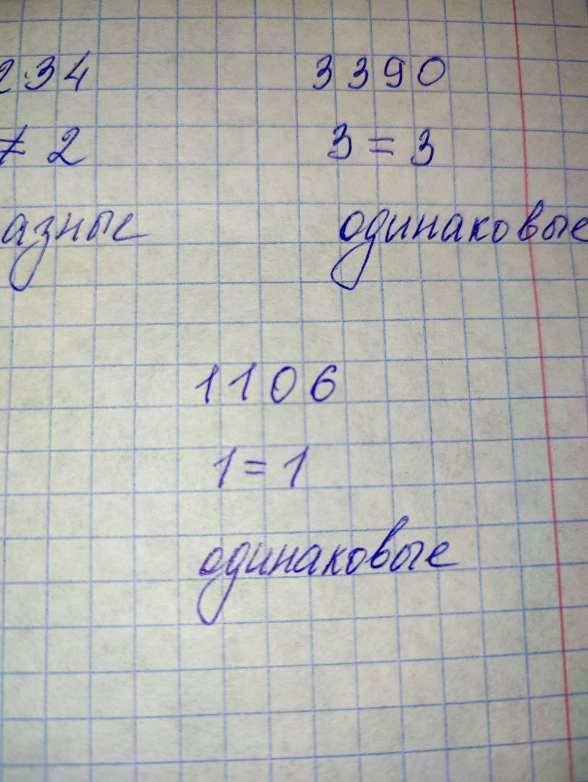 234
≠ 2
азные
3390
3 = 3
одинаковые
1106
1 = 1
одинаковые